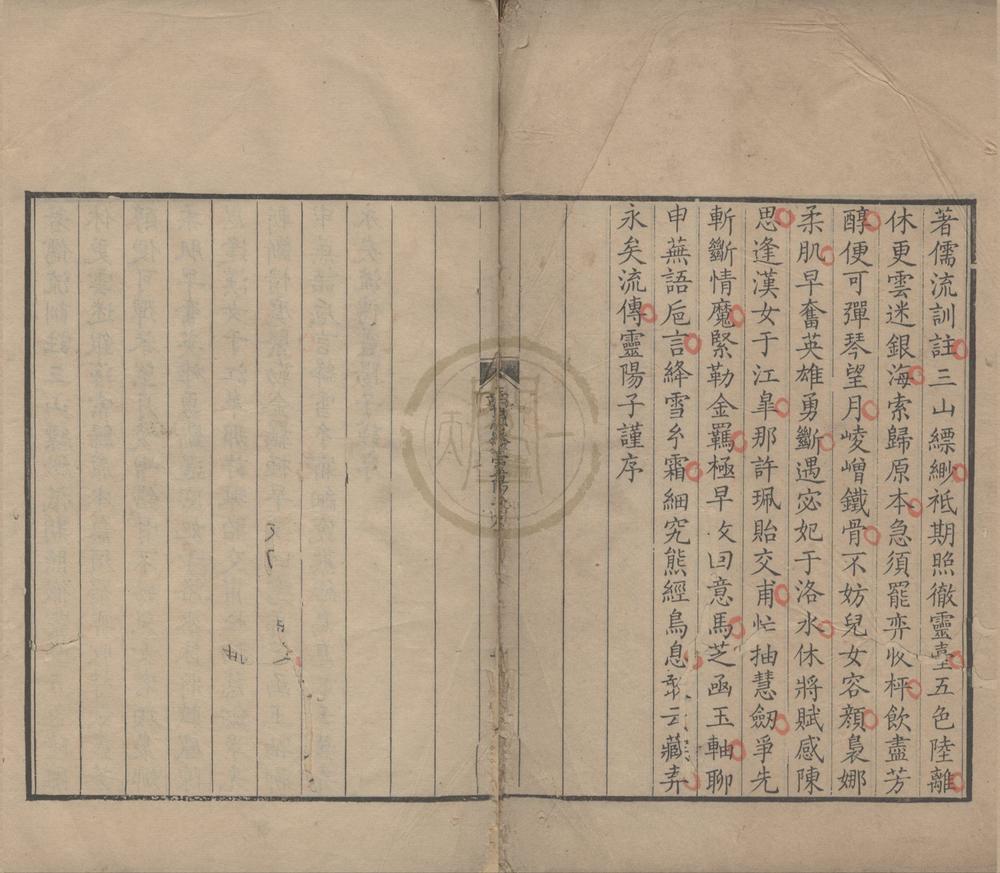 著儒流訓註三山縹緲祗期照徹靈臺五色陸離
休更雲迷銀海索歸原本急須罷弈收枰飲盡芳
醇便可彈琴望月崚嶒鐵骨不妨兒女容顏裊娜
柔肌早奮英雄勇斷遇宓妃于洛水休將賦感陳
思逢漢女于江臯那許珮貽交甫忙抽慧劔爭先
斬斷情魔緊勒金羈極早攵回意馬芝函玉軸聊
申蕪語巵言絳雪玄霜細究熊經鳥息敢云藏弆
永矣流傳靈陽子謹序